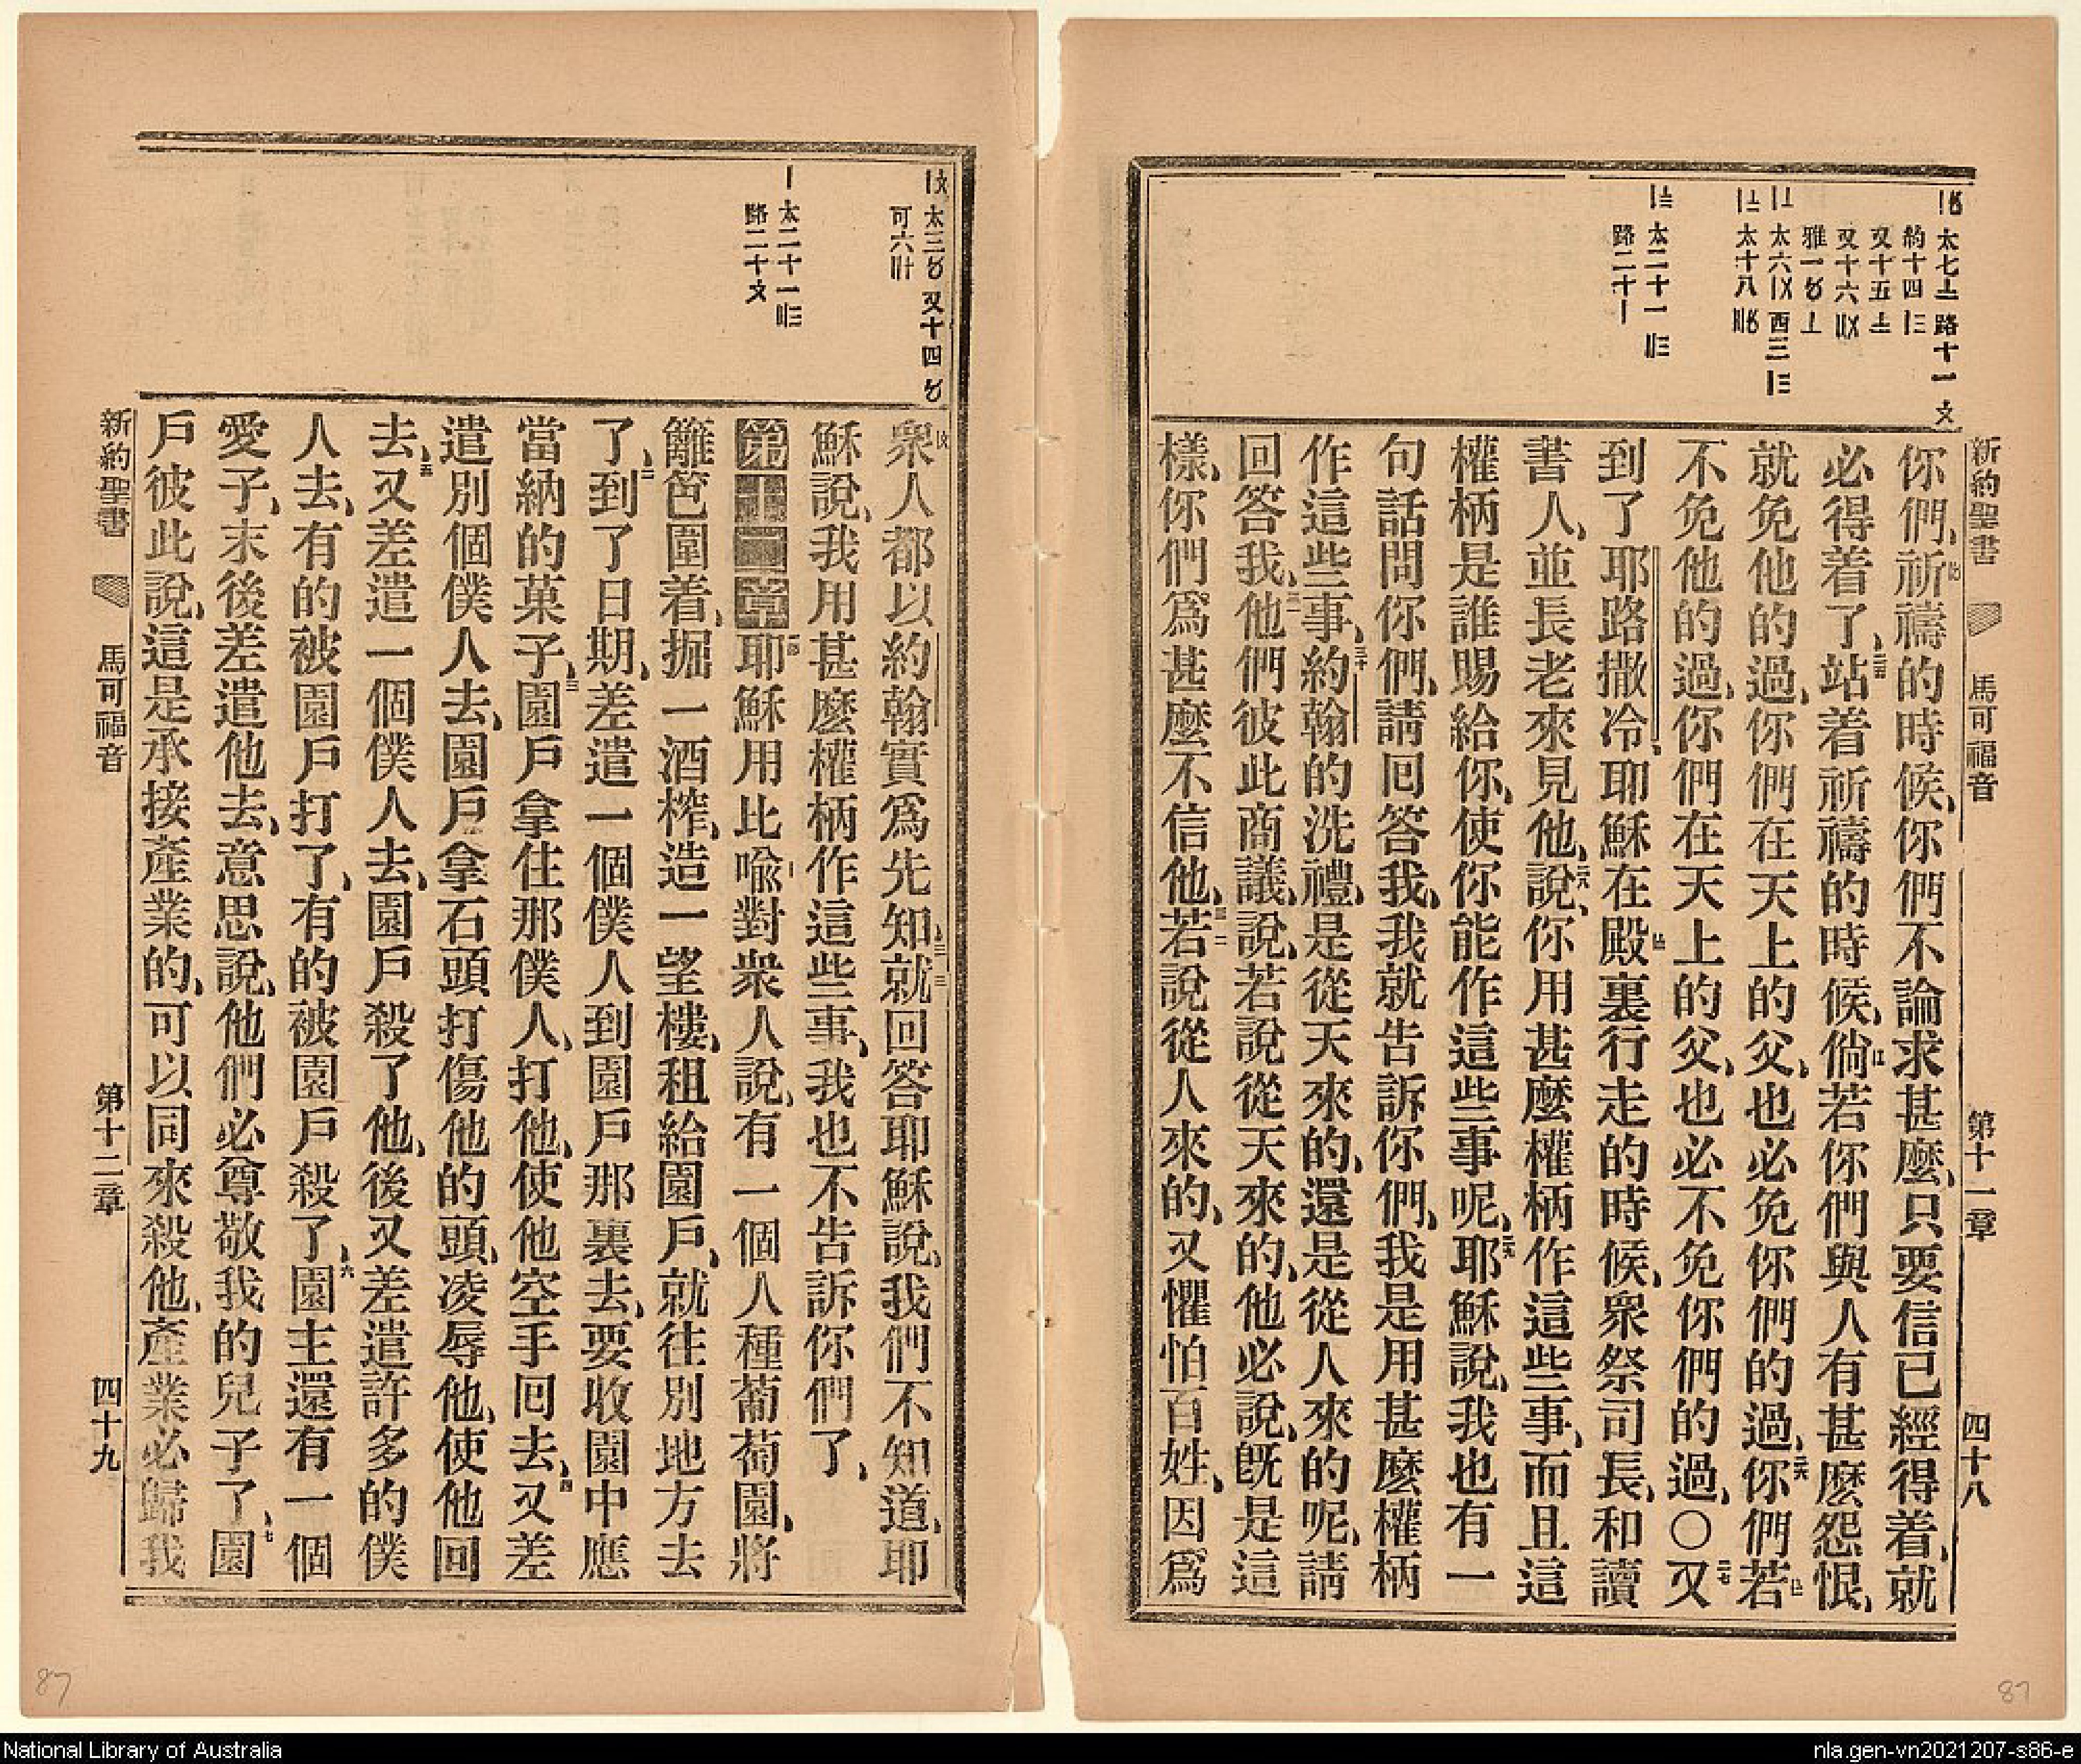 新約聖書 馬可福音 第十一章 四十八
你們、祈禱的時候、你們不論求甚麼、只要信已經得着、就
必得着了、站着祈禱的時候、倘若你們與人有甚麼怨恨、
就免他的過、你們在天上的父、也必免你們的過、你們若
不免他的過、你們在天上的父、也必不免你們的過、○又
到了耶路撒冷、耶穌在殿裏行走的時候、衆祭司長、和讀
書人、並長老來見他、說、你用甚麼權柄作這些事、而且這
權柄是誰賜給你、使你能作這些事呢、耶穌說、我也有一
句話問你們、請囘答我、我就告訴你們、我是用甚麼權柄
作這些事、約翰的洗禮、是從天來的、還是從人來的呢、請
回答我、他們彼此商議、說、若說從天來的、他必說、旣是這
樣、你們爲甚麼不信他、若說從人來的、又懼怕百姓、因爲
衆人都以約翰實爲先知、就回答耶穌說、我們不知道、耶
穌說、我用甚麼權柄作這些事、我也不告訴你們了、
第十二章 耶穌用比喩對衆人說、有一個人種葡萄園、將
籬笆圍着、掘一酒榨、造一望樓、租給園戶、就往別地方去
了、到了日期、差遣一個僕人到園戶那裏去、要收園中應
當納的菓子、園戶拿住那僕人、打他、使他空手囘去、又差
遣別個僕人去、園戶拿石頭打傷他的頭、凌辱他、使他回
去、又差遣一個僕人去、園戶殺了他、後又差遣許多的僕
人去、有的被園戶打了、有的被園戶殺了、園主還有一個
愛子、末後差遣他去、意思說、他們必尊敬我的兒子了、園
戶彼此說、這是承接產業的、可以同來殺他、產業必歸我
新約聖書 馬可福音 第十二章 四十九
87
87
National Library of Australia
nla.gen-vn2021207-s86-e